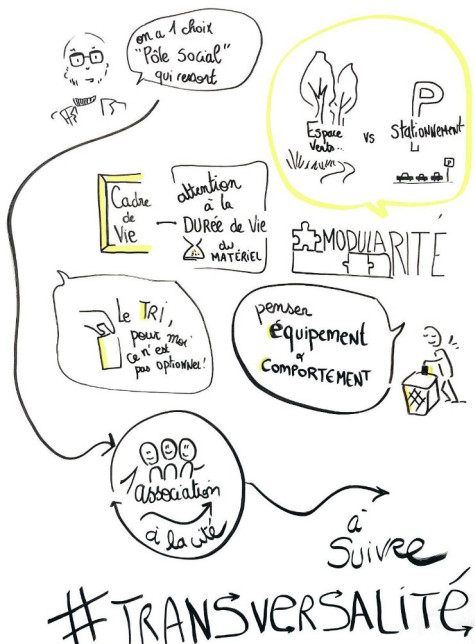 on a 1 choix
"Pôle Social"
qui ressort
Espace
Verts..
vs
P
Stationnement
P
Cadre
de
Vie
attention
à la
DURÉE de Vie
du
MATÉRIEL
MODULARITÉ
Le TRI,
pour moi
ce n'est
pas optionnel!
penser
équipement
&
COMPORTEMENT
1 association
à la cité
à
SUIVRE
#TRANSVERSALITÉ